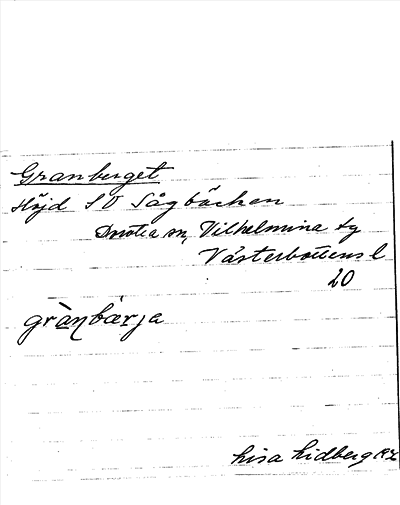 Granberget
Höjd SO Sågbäcken
Dorotea sn, Vilhelmina tg
Västerbottens l
20
grànbærja
Lisa Lidberg